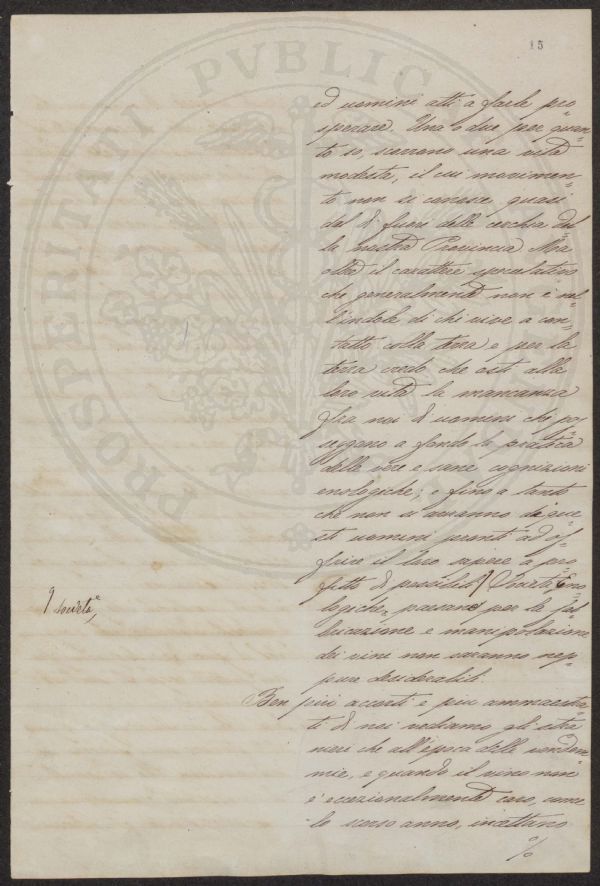 15
ed uomini atti a farle pro
sperare. Una o due per quan-
to so, scorrono una vita
modesta, il cui movimen-
to non si conosce quasi
dal di fuori della cerchia del
la nostra Provincia Ma
oltre il carattere speculativo
che generalmente non è nel
l'indole di chi vive a con-
tatto colla terra e per la
terra credo che osti alla
loro vita la mancanza
fra noi di uomini che pos
seggano a fondo la pratica
delle vere e sane cognizioni
enologiche; e fino a tanto
che non si avranno di que
sti uomini pronti ad of-
frire il loro sapere a pro
fitto di possibili Società Eno
logiche, per la fab
bricazione e manipolazione
dei vini non saranno nep-
pure desiderabili.
società,
Ben più accorti e più ammaestra
ti di noi vediamo gli stra
nieri che all'epoca delle vendem
mie, e quando il vino non
è eccezionalmente caro, come
lo scorso anno, incettano
%
PROSPERITATI PVBLIC